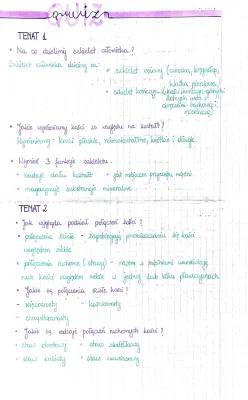 QUIZ
TEMAT 1
• Na co dzielimy szkielet człowieka?
Szkielet człowieka dzielimy na: • szkielet osiowy (czaszka, kręgosłup,
klatka piersiowa)
• szkielet kończyn (kości kończyn górnych i
dolnych oraz
obręczy barkowej i
miednicznej)
• Jakie wyróżniamy kości ze względu na kształt?
Wyróżniamy: kości płaskie, różnokształtne, krótkie i długie.
• Wymień 3 funkcje szkieletu:
- nadaje ciału kształt
- jest miejscem przyczepu mięśni
- magazynuje substancje mineralne
TEMAT 2
• Jak wygląda podział połączeń kości?
• połączenia ścisłe - zapobiegają przemieszczaniu się kości
względem siebie
• połączenia ruchome (stawy) - razem z mięśniami umożliwiają
ruch kości względem siebie w jednej lub kilku płaszczyznach
• Jakie są połączenia ścisłe kości?
- więzozrosty - kościozrosty
- chrząstkozrosty
• Jakie są rodzaje połączeń ruchomych kości?
- staw obrotowy • staw siodełkowy
- staw kulisty • staw zawiasowy